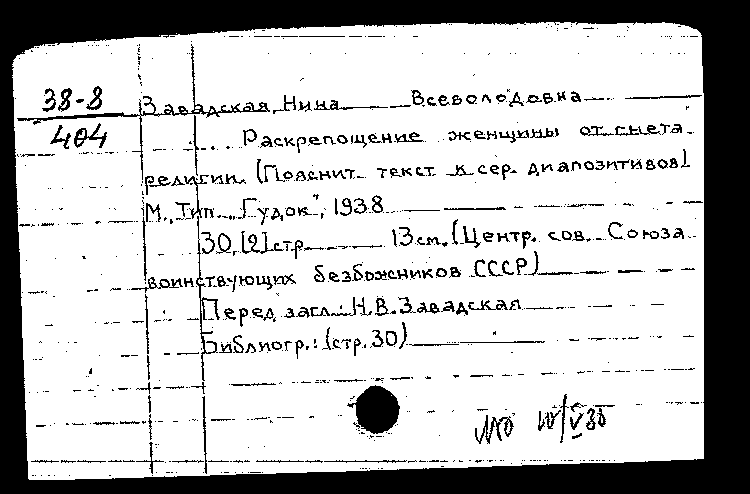 38-8
404
Завадская, Нина Всеволодовна
Раскрепощение женщины от гнета
религии. (Пояснит. текст к сер. диапозитивов)
М., Тип. "Гудок", 1938
30, [2] стр. 13 см. (Центр. сов. Союза
воинствующих безбожников СССР)
Перед загл.: Н.В. Завадская
Библиогр.: (стр. 30)